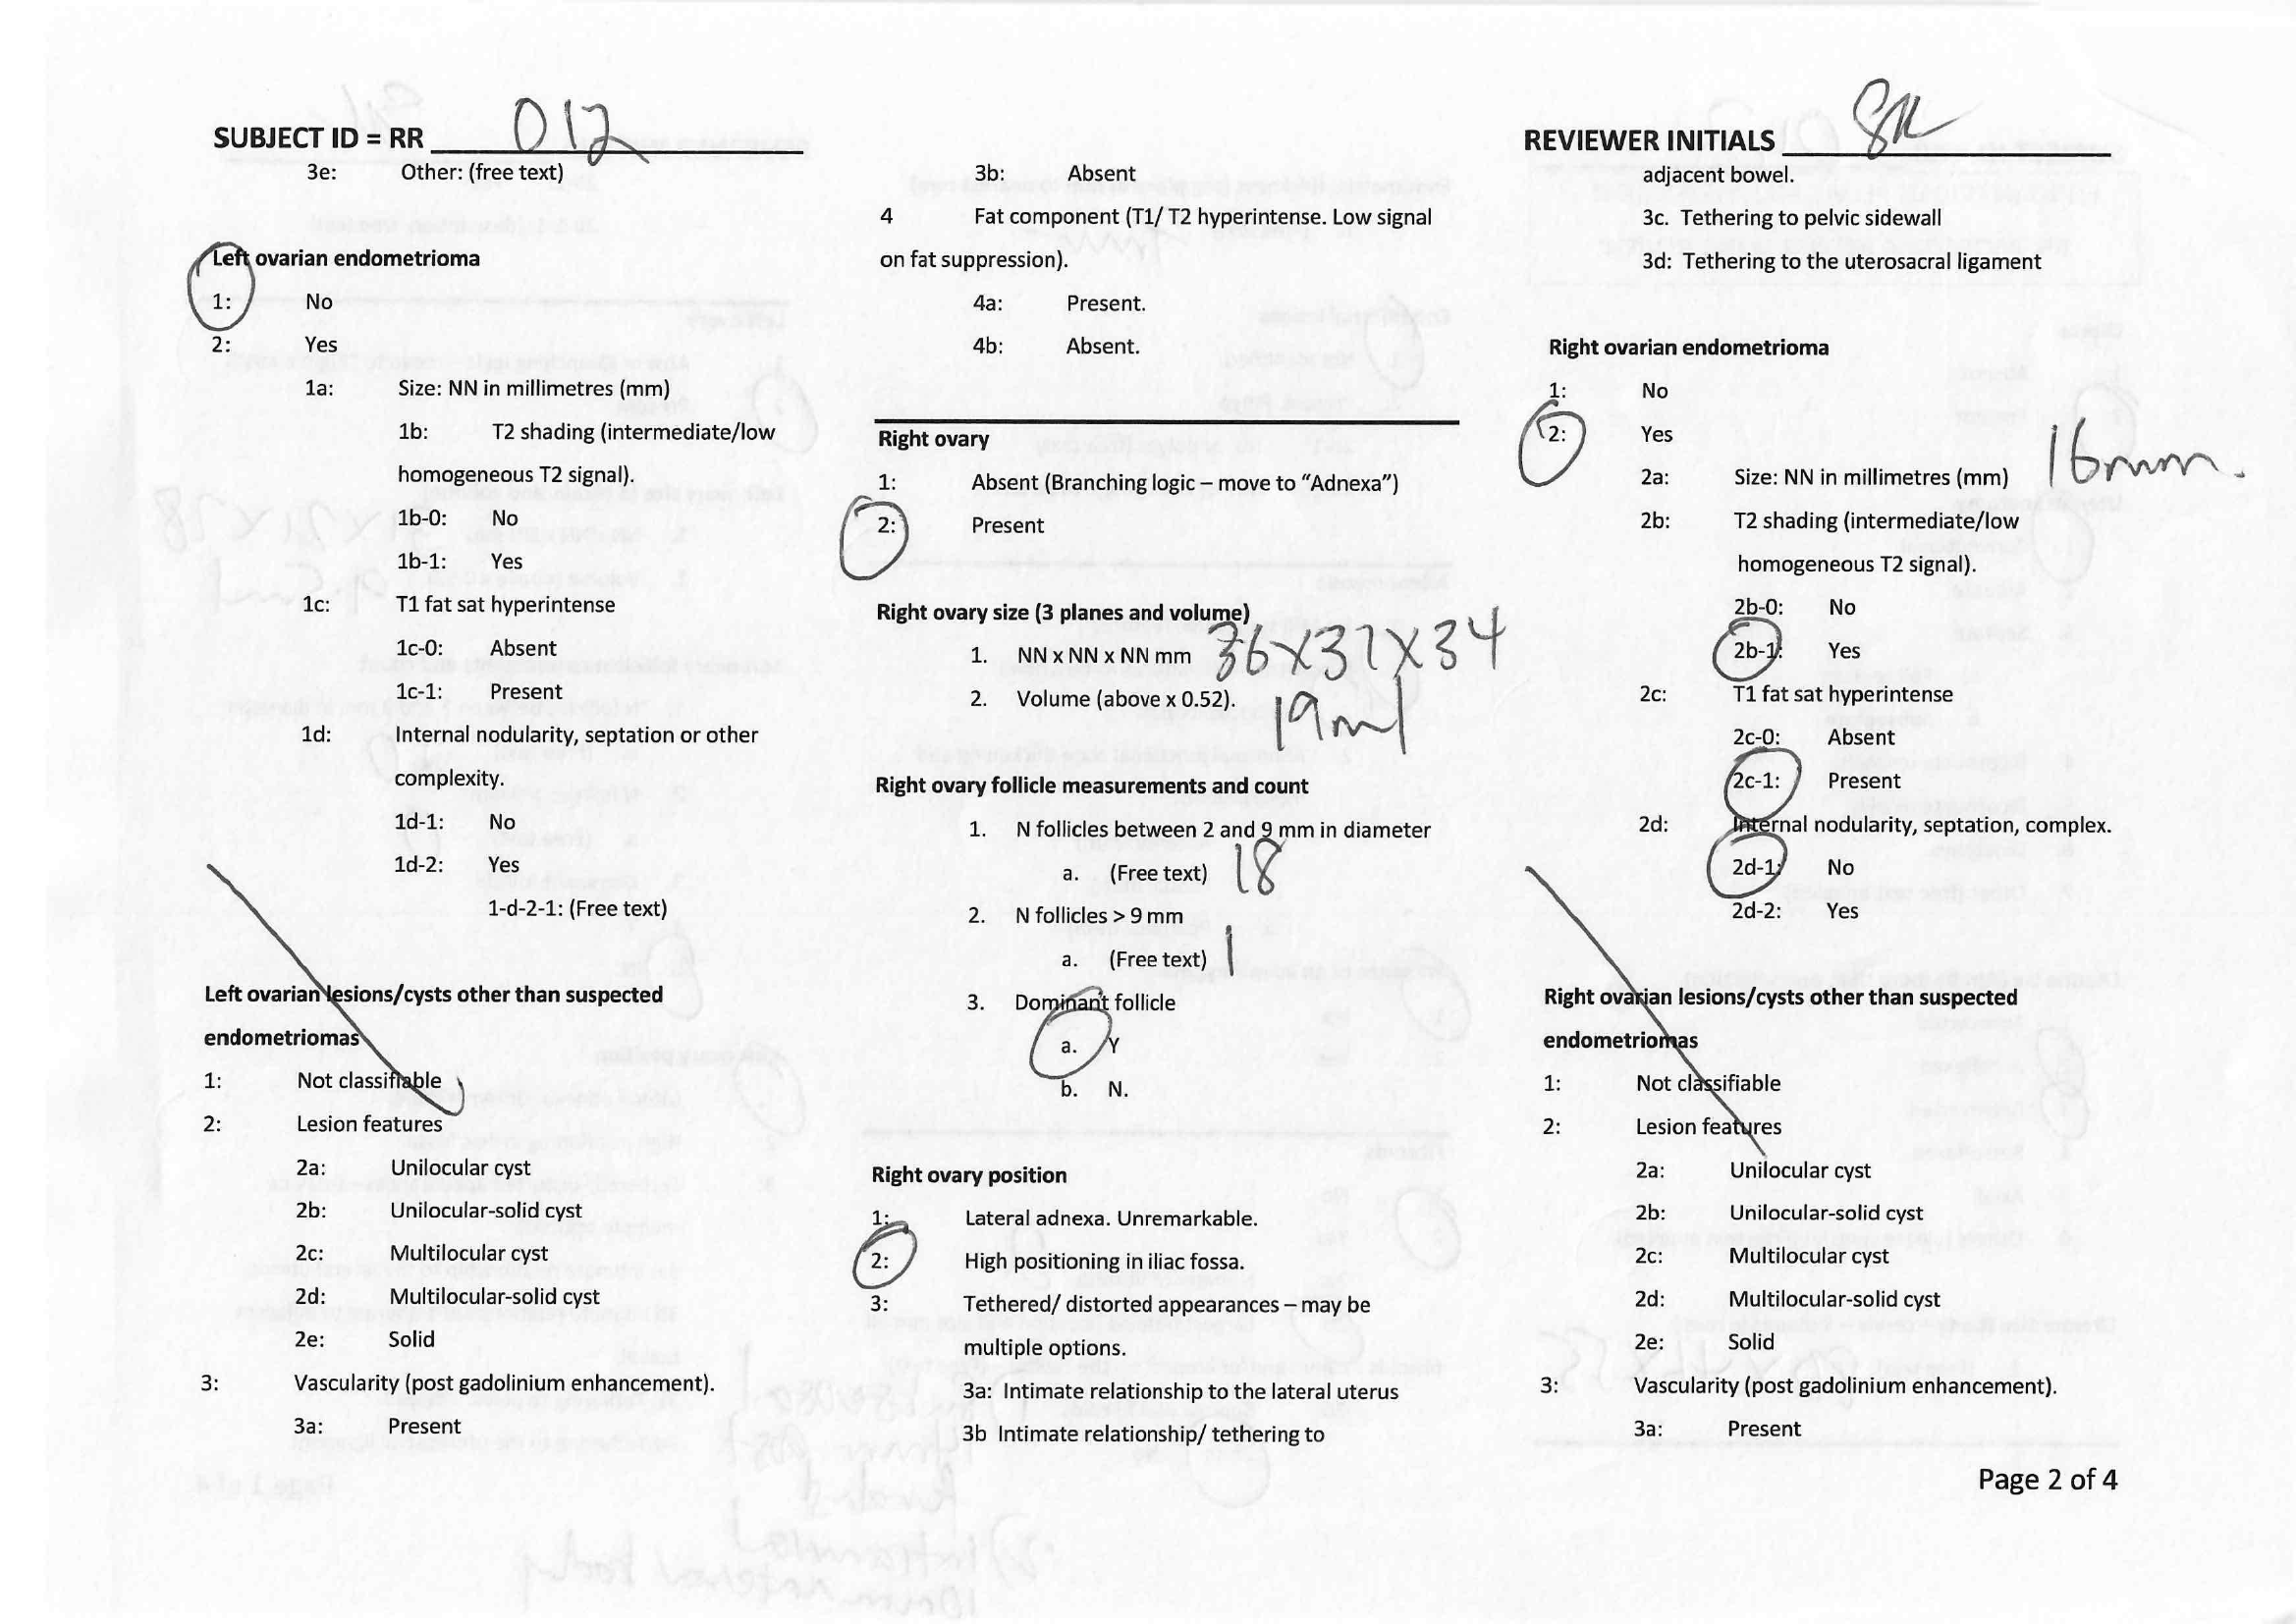 SUBJECT ID = RR 012
3e: Other: (free text)
Left ovarian endometrioma
1: No
2: Yes
1a: Size: NN in millimetres (mm)
1b: T2 shading (intermediate/low
homogeneous T2 signal).
1b-0: No
1b-1: Yes
1c: T1 fat sat hyperintense
1c-0: Absent
1c-1: Present
1d: Internal nodularity, septation or other
complexity.
1d-1: No
1d-2: Yes
1-d-2-1: (Free text)
Left ovarian lesions/cysts other than suspected
endometriomas
1: Not classifiable
2: Lesion features
2a: Unilocular cyst
2b: Unilocular-solid cyst
2c: Multilocular cyst
2d: Multilocular-solid cyst
2e: Solid
3: Vascularity (post gadolinium enhancement).
3a: Present
3b: Absent
4 Fat component (T1/ T2 hyperintense. Low signal
on fat suppression).
4a: Present.
4b: Absent.
Right ovary
1: Absent (Branching logic – move to “Adnexa”)
2: Present
Right ovary size (3 planes and volume)
1. NN x NN x NN mm 36 x 31 x 34
2. Volume (above x 0.52). 19ml
Right ovary follicle measurements and count
1. N follicles between 2 and 9 mm in diameter
a. (Free text) 18
2. N follicles > 9 mm
a. (Free text) 1
3. Dominant follicle
a. Y
b. N.
Right ovary position
1: Lateral adnexa. Unremarkable.
2: High positioning in iliac fossa.
3: Tethered/ distorted appearances – may be
multiple options.
3a: Intimate relationship to the lateral uterus
3b Intimate relationship/ tethering to
REVIEWER INITIALS
adjacent bowel.
3c. Tethering to pelvic sidewall
3d: Tethering to the uterosacral ligament
Right ovarian endometrioma
1: No
2: Yes
2a: Size: NN in millimetres (mm) 16mm.
2b: T2 shading (intermediate/low
homogeneous T2 signal).
2b-0: No
2b-1: Yes
2c: T1 fat sat hyperintense
2c-0: Absent
2c-1: Present
2d: Internal nodularity, septation, complex.
2d-1: No
2d-2: Yes
Right ovarian lesions/cysts other than suspected
endometriomas
1: Not classifiable
2: Lesion features
2a: Unilocular cyst
2b: Unilocular-solid cyst
2c: Multilocular cyst
2d: Multilocular-solid cyst
2e: Solid
3: Vascularity (post gadolinium enhancement).
3a: Present
Page 2 of 4